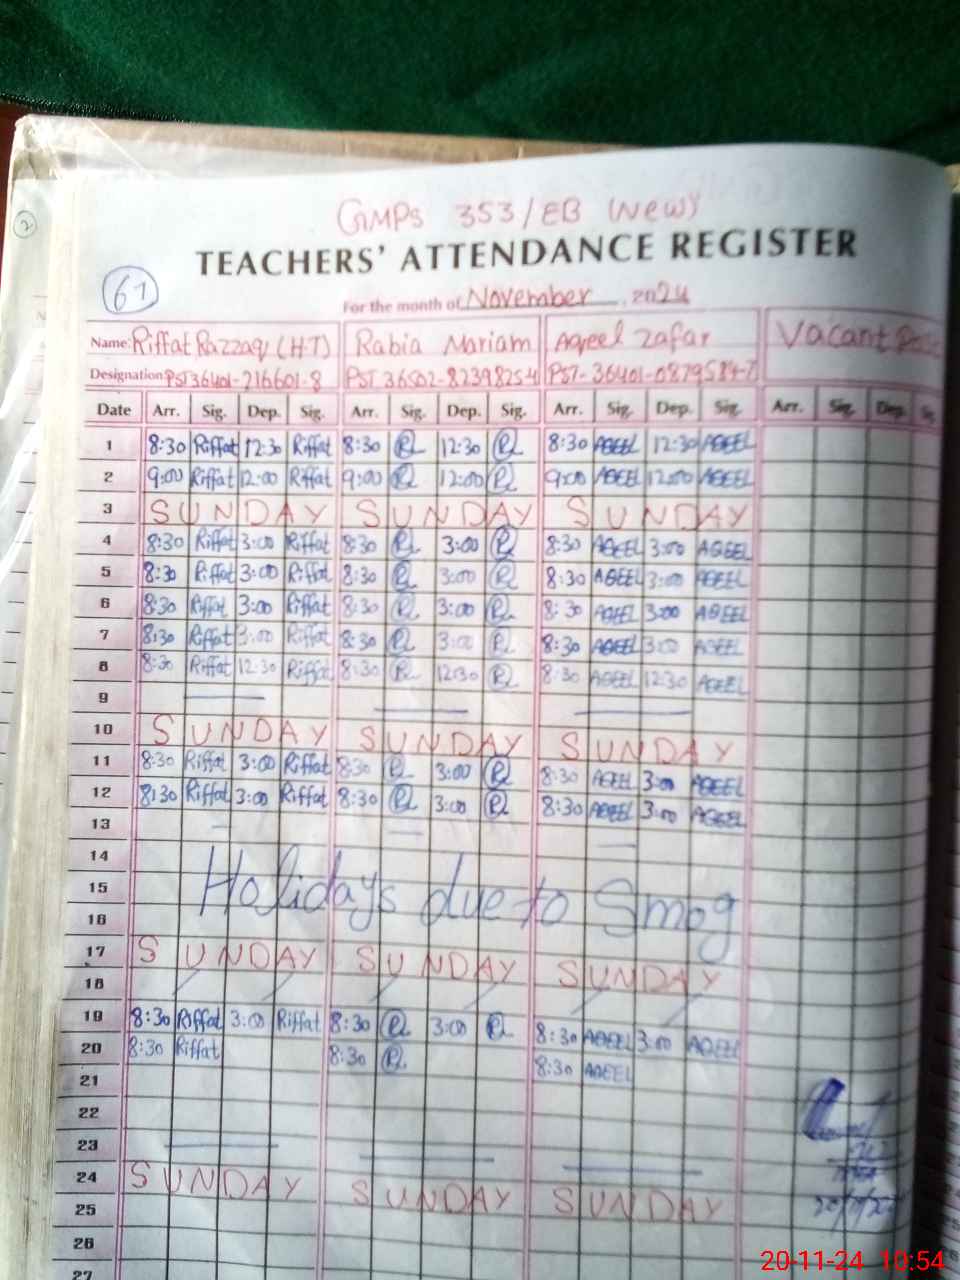 2
GMPS 353/EB (New)
TEACHERS' ATTENDANCE REGISTER
61
For the month of November, 2024
Name: Riffat Razzaq (H-T) Rabia Mariam Aqeel Zafar Vacant Post
Designation: PST 36401-216601-8 PST 36502-8239825-4 PST-36401-0879584-7
Date Arr. Sig. Dep. Sig. Arr. Sig. Dep. Sig. Arr. Sig. Dep. Sig. Arr. Sig. Dep. Sig.
1 8:30 Riffat 12:30 Riffat 8:30 R 12:30 R 8:30 AQEEL 12:30 AQEEL
2 9:00 Riffat 12:00 Riffat 9:00 R 12:00 R 9:00 AQEEL 12:00 AQEEL
3 SUNDAY SUNDAY SUNDAY
4 8:30 Riffat 3:00 Riffat 8:30 R 3:00 R 8:30 AQEEL 3:00 AQEEL
5 8:30 Riffat 3:00 Riffat 8:30 R 3:00 R 8:30 AQEEL 3:00 AQEEL
6 8:30 Riffat 3:00 Riffat 8:30 R 3:00 R 8:30 AQEEL 3:00 AQEEL
7 8:30 Riffat 3:00 Riffat 8:30 R 3:00 R 8:30 AQEEL 3:00 AQEEL
8 8:30 Riffat 12:30 Riffat 8:30 R 12:30 R 8:30 AQEEL 12:30 AQEEL
9
10 SUNDAY SUNDAY SUNDAY
11 8:30 Riffat 3:00 Riffat 8:30 R 3:00 R 8:30 AQEEL 3:00 AQEEL
12 8:30 Riffat 3:00 Riffat 8:30 R 3:00 R 8:30 AQEEL 3:00 AQEEL
13
14
15 Holidays due to Smog
16
17 SUNDAY SUNDAY SUNDAY
18
19 8:30 Riffat 3:00 Riffat 8:30 R 3:00 R 8:30 AQEEL 3:00 AQEEL
20 8:30 Riffat 8:30 R 8:30 AQEEL
21
22
23
24 SUNDAY SUNDAY SUNDAY
25
26
27
20-11-24 10:54